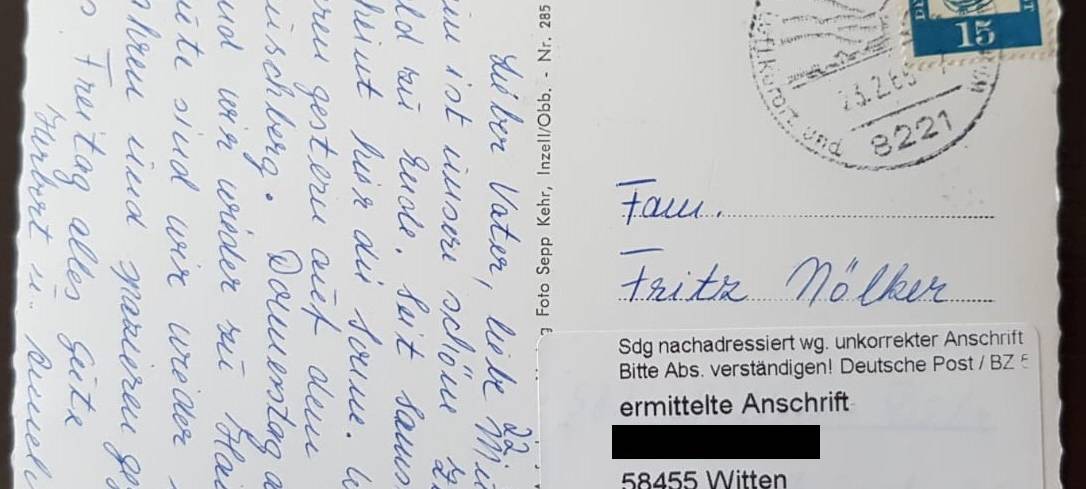 Lieber Vater, liebe
22
ist unsere schöne
zu Ende. Seit Sams
hier die Sonne. W
gestern auf dem
uschberg. Donnerstag a
und wir wieder zu Hau
sind wir wieder
und spazieren g
Freitag alles Gute
Herbert u.
g Foto Sepp Kehr, Inzell/Obb. - Nr. 285
15
23.2.65
und
8221
Fam.
Fritz Nölker
Sdg nachadressiert wg. unkorrekter Anschrift
Bitte Abs. verständigen! Deutsche Post / BZ
ermittelte Anschrift
58455 Witten